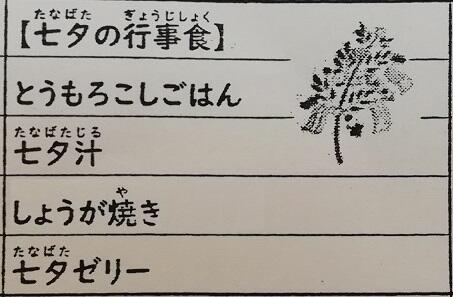 たなばた ぎょうじしょく
【七夕の行事食】
とうもろこしごはん
たなばたじる
七夕汁
や
しょうが焼き
たなばた
七夕ゼリー